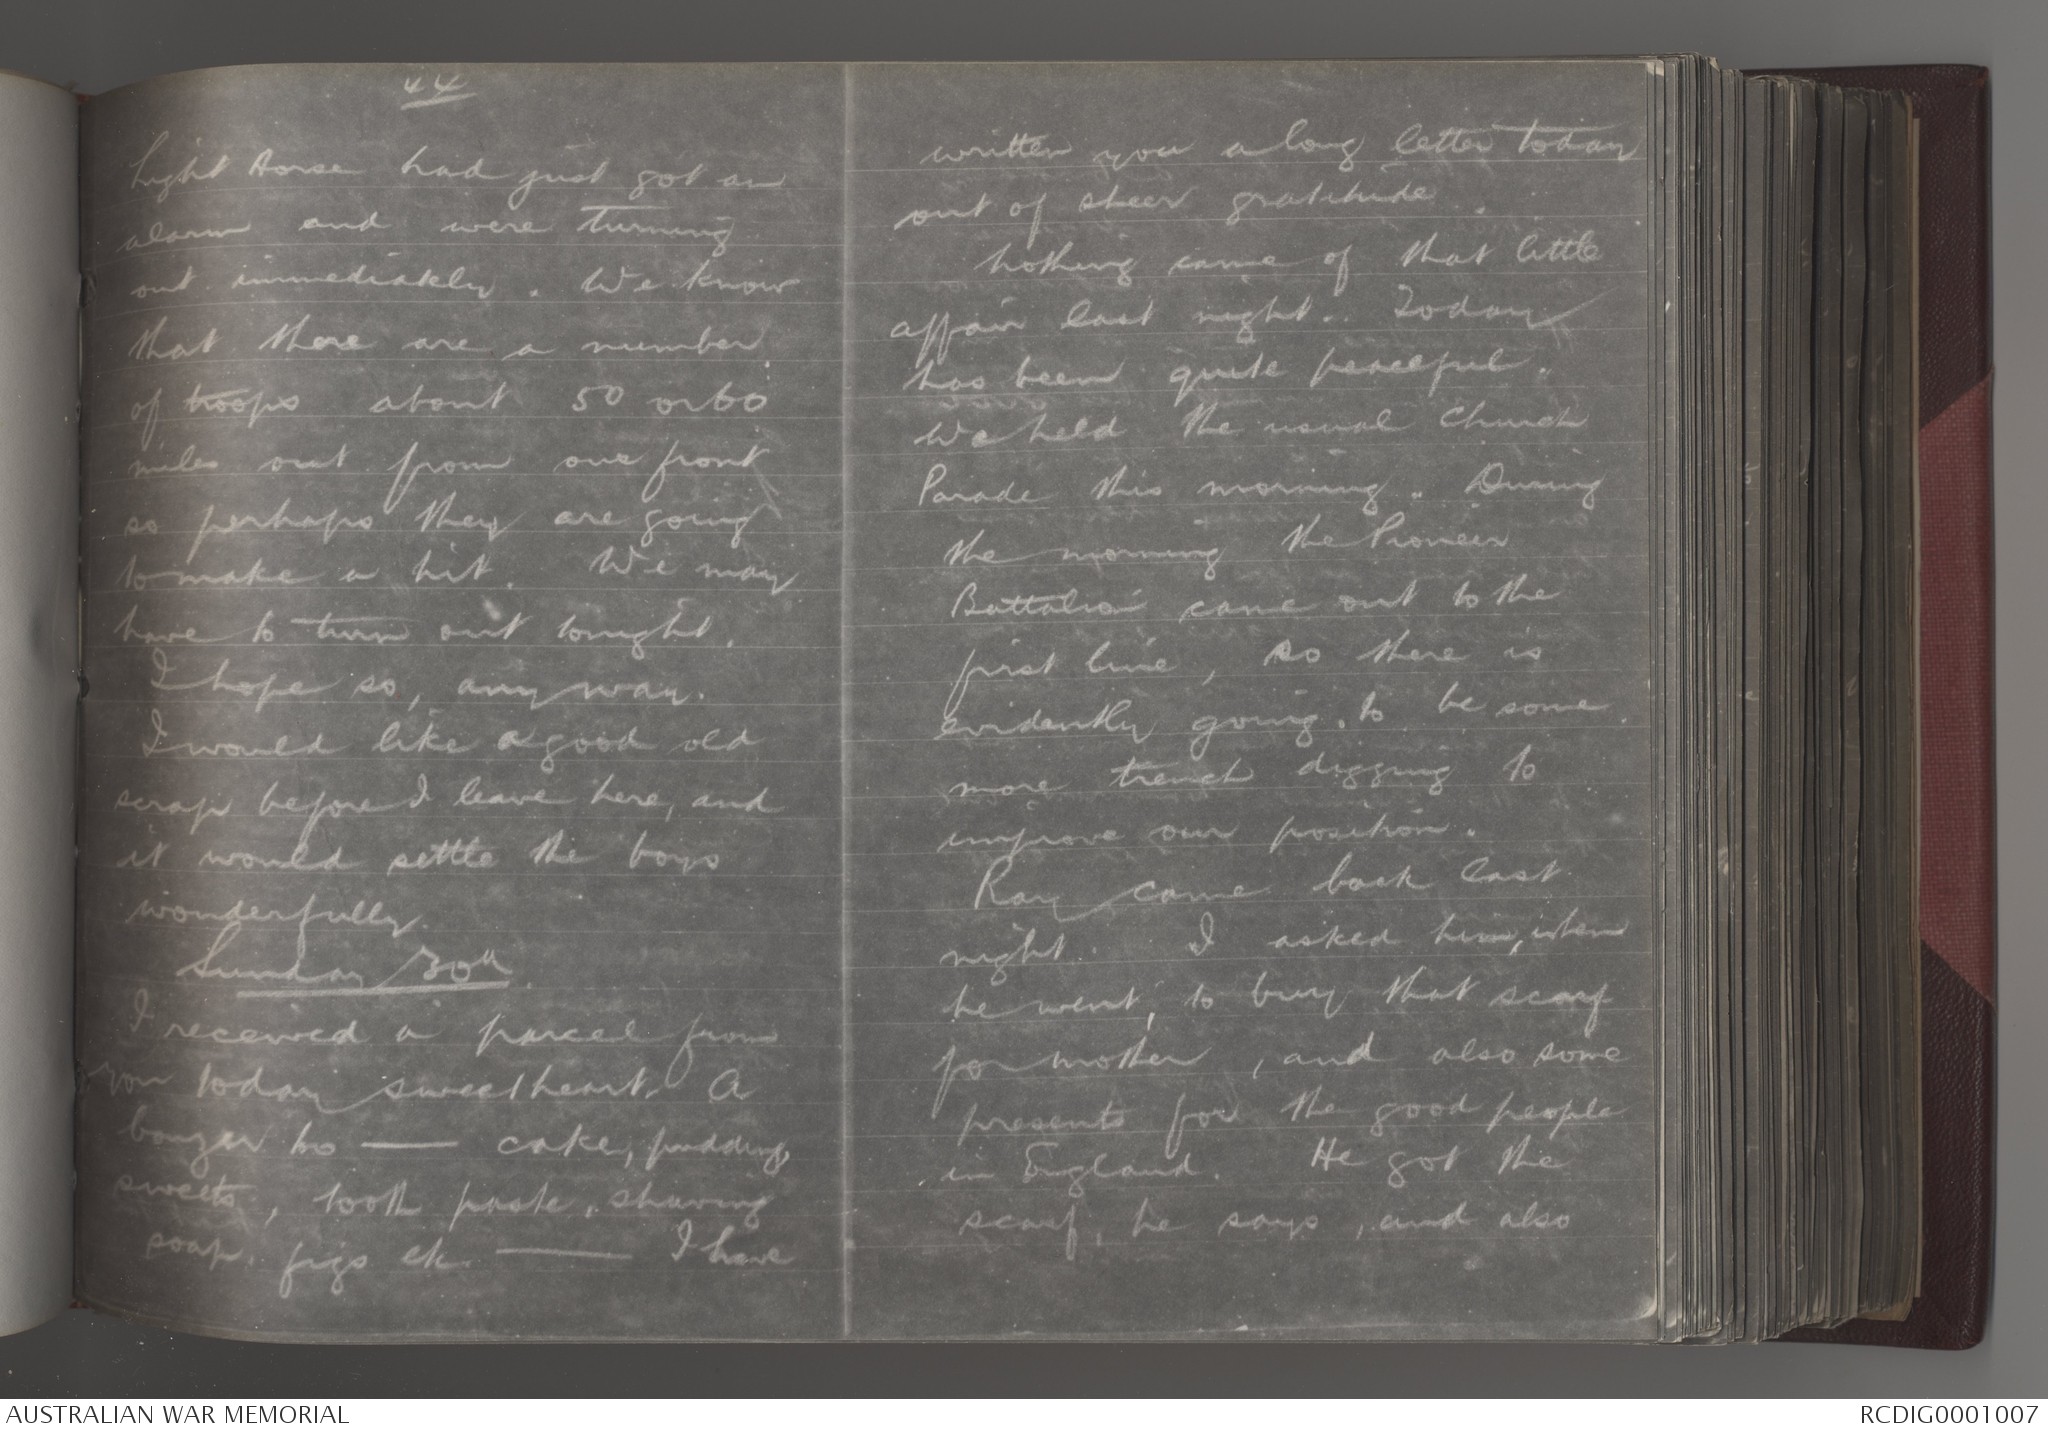 44
Light Horse had just got an
alarm and were turning
out immediately. We know
that there are a number
of troops about 50 or 60
miles out from our front
so perhaps they are going
to make a hit. We may
have to turn out tonight.
I hope so, anyway.
I would like a good old
scrap before I leave here, and
it would settle the boys
wonderfully.
Sunday 30th.
I received a parcel from
you today sweetheart. A
bonzer too — cake, pudding,
sweets, tooth paste, shaving
soap, figs etc. — I have
written you a long letter today
out of sheer gratitude.
Nothing came of that little
affair last night. Today
has been quite peaceful.
We held the usual Church
Parade this morning. During
the morning the Pioneer
Battalion came out to the
first line, so there is
evidently going to be some
more trench digging to
improve our position.
Ray came back last
night. I asked him, when
he went, to buy that scarf
for mother, and also some
presents for the good people
in England. He got the
scarf, he says, and also
AUSTRALIAN WAR MEMORIAL
RCDIG0001007